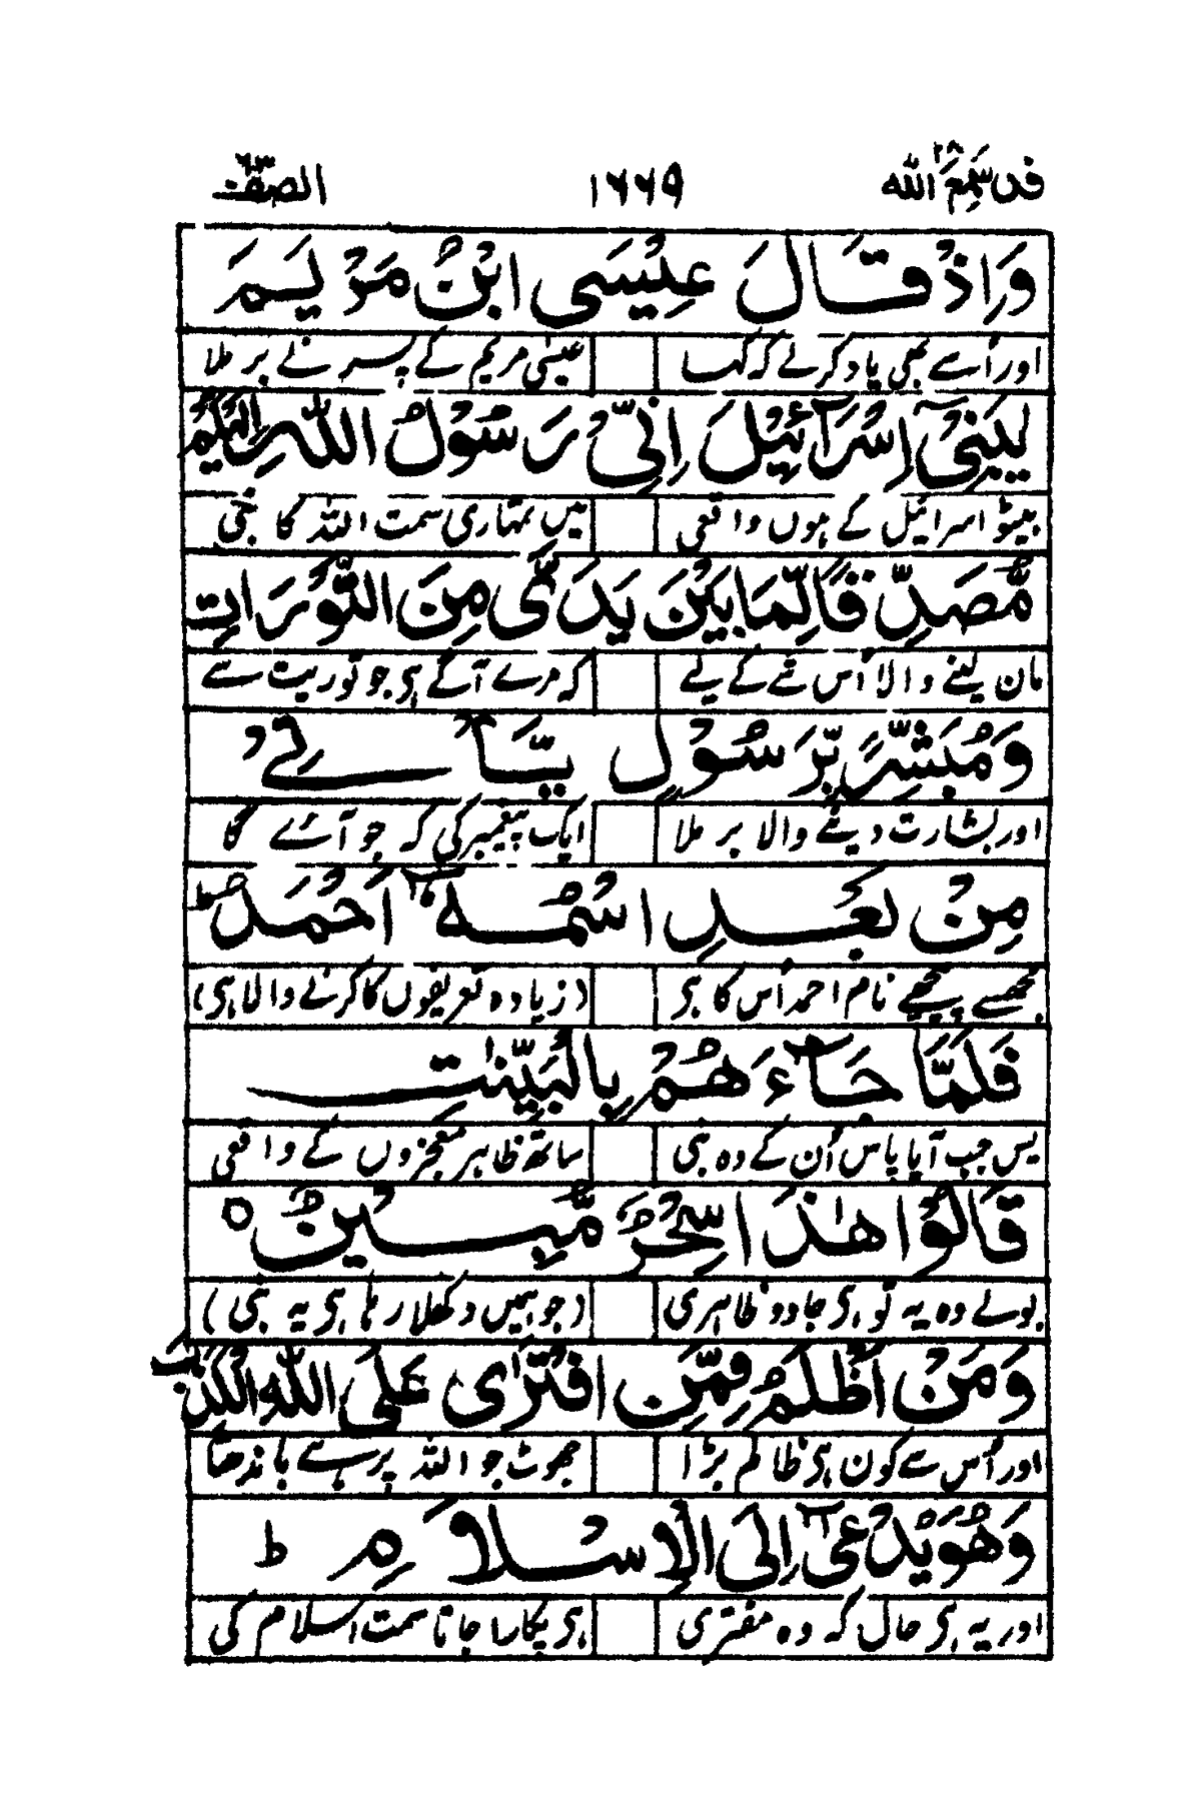 قد سمع الله ۲۸ ۱۶۶۹ الصف ۶۱
وَاِذْ قَالَ عِيْسَى ابْنُ مَرْيَمَ
اور اُسے بھی یاد کر لے کہ کہا عیسٰی مریم کے پسر نے بر ملا
يٰبَنِيْٓ اِسْرَآئِيْلَ اِنِّيْ رَسُوْلُ اللّٰهِ اِلَيْكُمْ
بیٹو اسرائیل کے ہوں واقعی میں تمہاری سمت اللہ کا نبی
مُّصَدِّقًا لِّمَا بَيْنَ يَدَيَّ مِنَ التَّوْرَاتِ
مان لینے والا اُس شے کے لیے کہ مرے آگے ہی جو توریت سے
وَمُبَشِّرًۢا بِرَسُوْلٍ يَّاْتِيْ
اور بشارت دینے والا بر ملا ایک پیغمبر کی کہ جو آئے گا
مِنْۢ بَعْدِي اسْمُهٗٓ اَحْمَدُ ط
مجھسے پیچھے نام احمد اُس کا ہی (زیادہ تعریفوں کا کرنے والا ہی)
فَلَمَّا جَآءَهُمْ بِالْبَيِّنٰتِ
پس جب آیا پاس اُن کے وہ نبی ساتھ ظاہر معجزوں کے واقعی
قَالُوْا هٰذَا سِحْرٌ مُّبِيْنٌ ○
بولے وہ یہ تو ہی جادو ظاہری (جو ہمیں دکھلا رہا ہی یہ نبی)
وَمَنْ اَظْلَمُ مِمَّنِ افْتَرٰى عَلَى اللّٰهِ الْكَذِبَ
اور اُس سے کون ہی ظالم بڑا جھوٹ جو اللہ پر ہے باندھتا
وَهُوَ يُدْعٰىٓ اِلَى الْاِسْلَامِ ط
اور یہ ہی حال کہ وہ مفتری ہی پکارا جاتا سمت اسلام کی